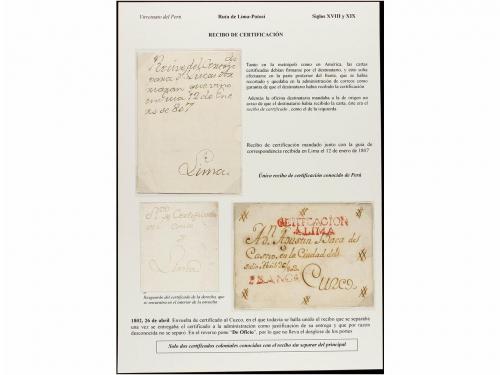 Virreinato del Perú
Ruta de Lima-Potosí
Siglos XVIII y XIX
RECIBO DE CERTIFICACIÓN
Tanto en la metrópoli como en América, las cartas
certificadas debían firmarse por el destinatario, y esto solía
efectuarse en la parte posterior del frente, que se había
recortado y quedaba en la administración de correos como
garantía de que el destinatario había recibido la certificación
Además la oficina destinataria mandaba a la de origen un
aviso de que el destinatario había recibido la carta, éste era el
recibo de certificado, como el de la izquierda
Recibo de certificación mandado junto con la guía de
correspondencia recibida en Lima el 12 de enero de 1807
Único recibo de certificación conocido de Perú
Lima
CERTIFICACION
A LIMA
Dn. Agustin Baca del
Castro, en la Ciudad del
Cuzco
FRANCA
Resguardo del certificado de la derecha, que
se encuentra en el interior de la envuelta
1802, 26 de abril. Envuelta de certificado al Cuzco, en el que todavía se halla unido el recibo que se separaba
una vez se entregaba el certificado a la administración como justificación de su entrega y que por razón
desconocida no se separó. En el reverso pone "De Oficio", por lo que no lleva el desglose de los portes
Solo dos certificados coloniales conocidos con el recibo sin separar del principal